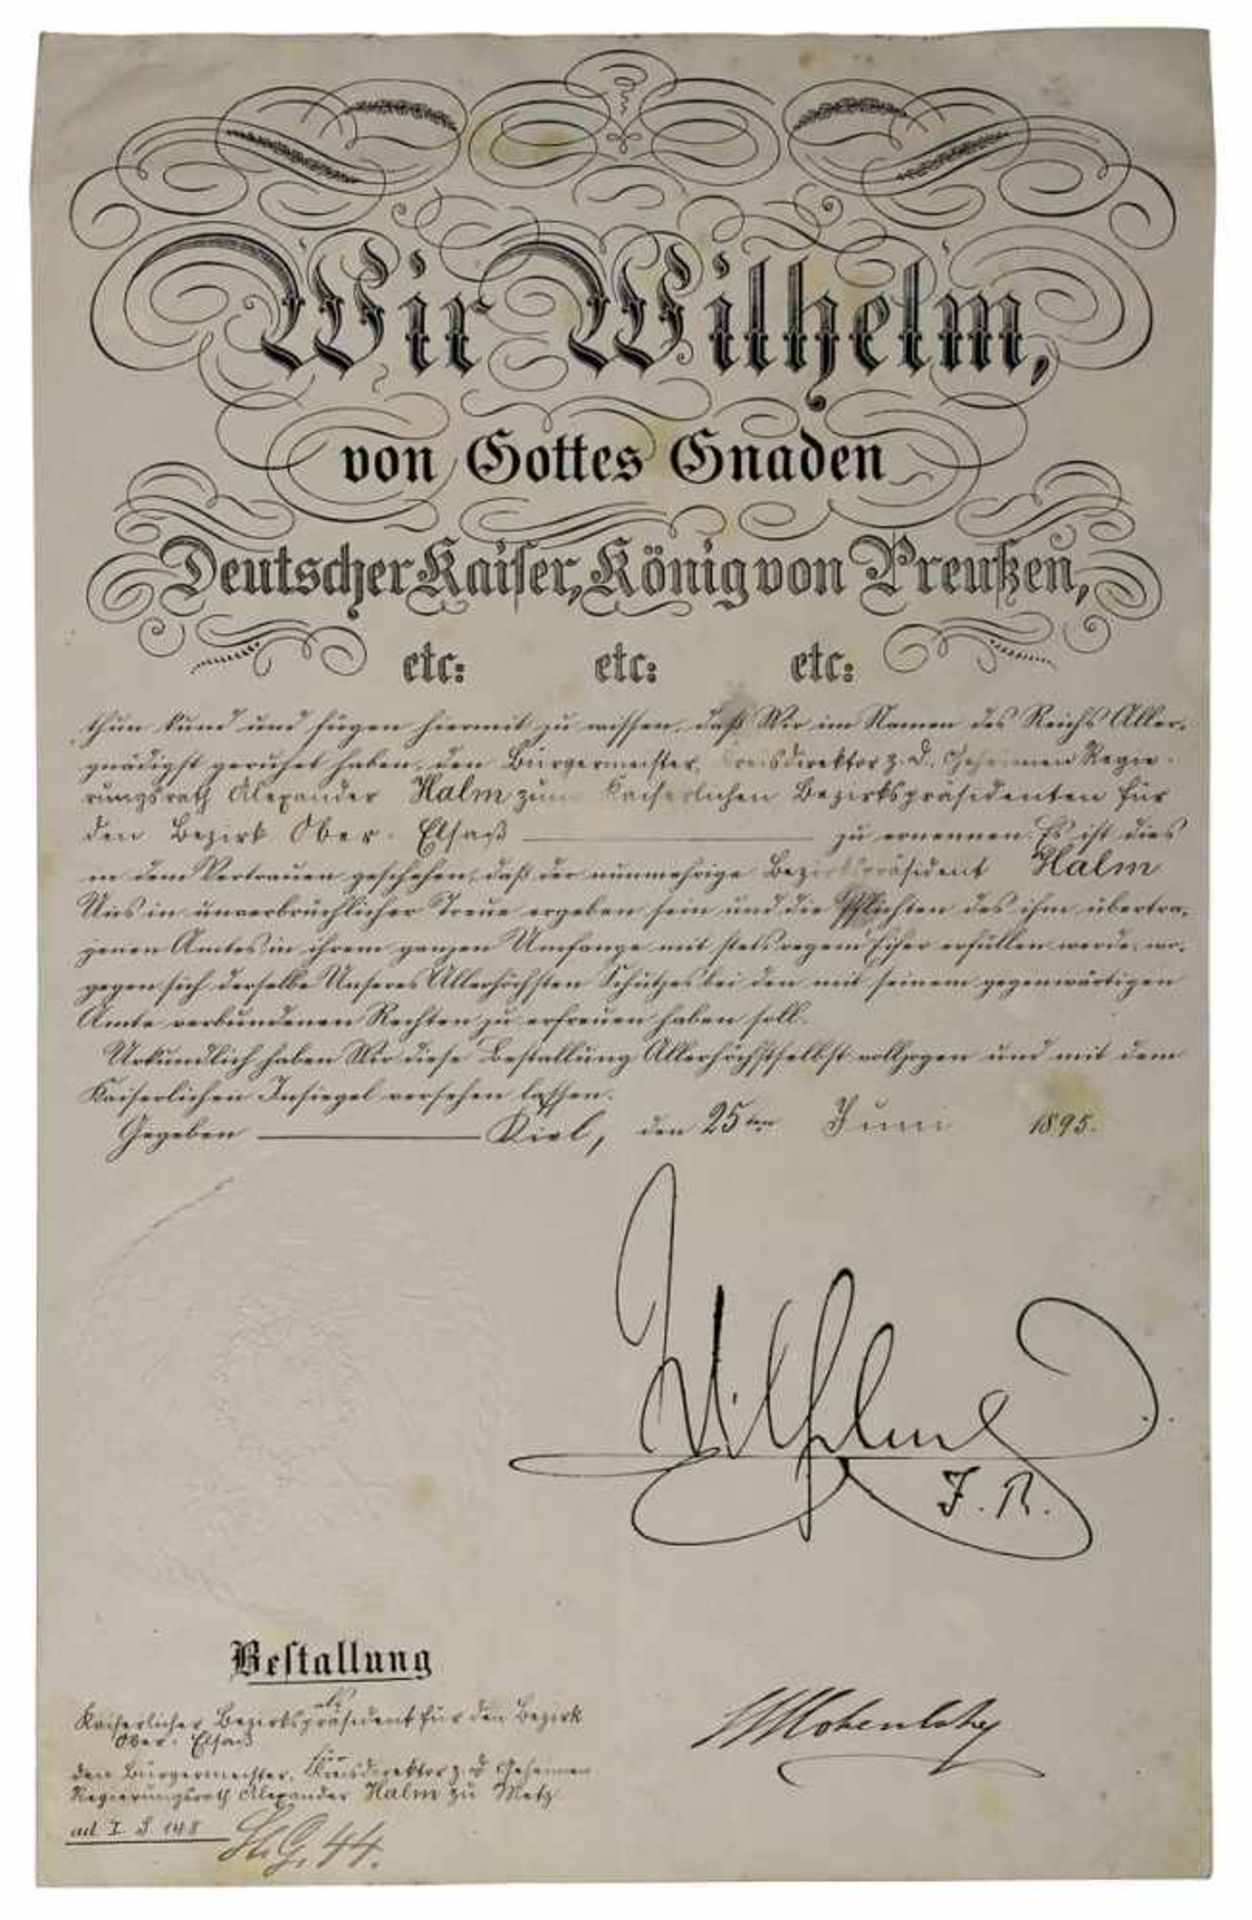 Wir Wilhelm,
von Gottes Gnaden
Deutscher Kaiser, König von Preußen,
etc: etc: etc:
thun kund und fügen hiermit zu wissen, daß Wir im Namen des Reichs Aller-
gnädigst geruhet haben, den Bürgermeister, Kreisdirektor z. D. Geheimen Regie-
rungsrath Alexander Halm zum Kaiserlichen Bezirkspräsidenten für
den Bezirk Ober-Elsaß zu ernennen. Es ist dies
in dem Vertrauen geschehen, daß der nunmehrige Bezirkspräsident Halm
Uns in unverbrüchlicher Treue ergeben sein und die Pflichten des ihm übertra-
genen Amtes in ihrem ganzen Umfange mit stets regem Eifer erfüllen werde, wo-
gegen sich derselbe Unseres Allerhöchsten Schutzes bei den mit seinem gegenwärtigen
Amte verbundenen Rechten zu erfreuen haben soll.
Urkundlich haben Wir diese Bestallung Allerhöchstselbst vollzogen und mit dem
Kaiserlichen Insiegel versehen lassen.
Gegeben Kiel, den 25ten Juni 1895.
Wilhelm
I. R.
Bestallung
als
Kaiserlicher Bezirkspräsident für den Bezirk
Ober-Elsaß
für
den Bürgermeister, Kreisdirektor z. D. Geheimen
Regierungsrath Alexander Halm zu Metz
ad I. S. 148
St. G. 44.
Hohenlohe